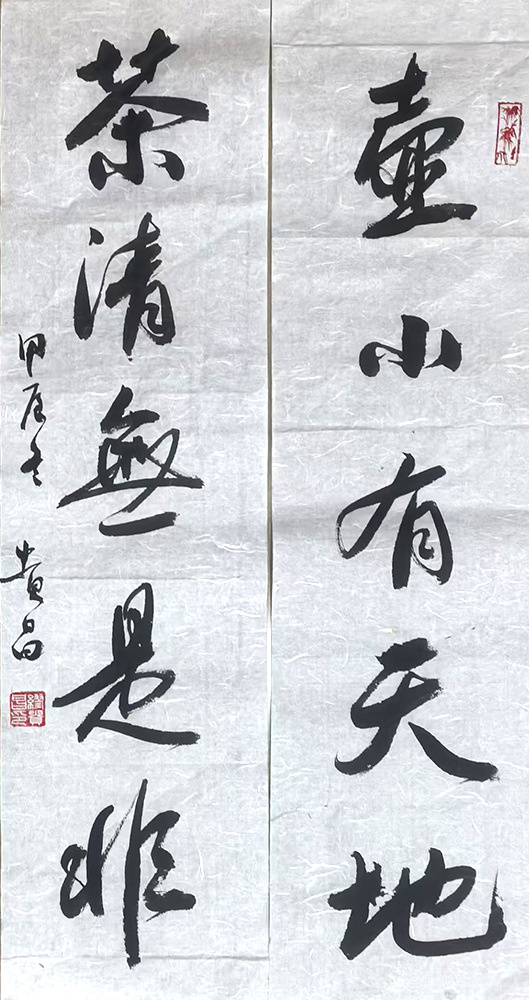 壺小有天地
茶清無是非
甲辰冬 貴昌